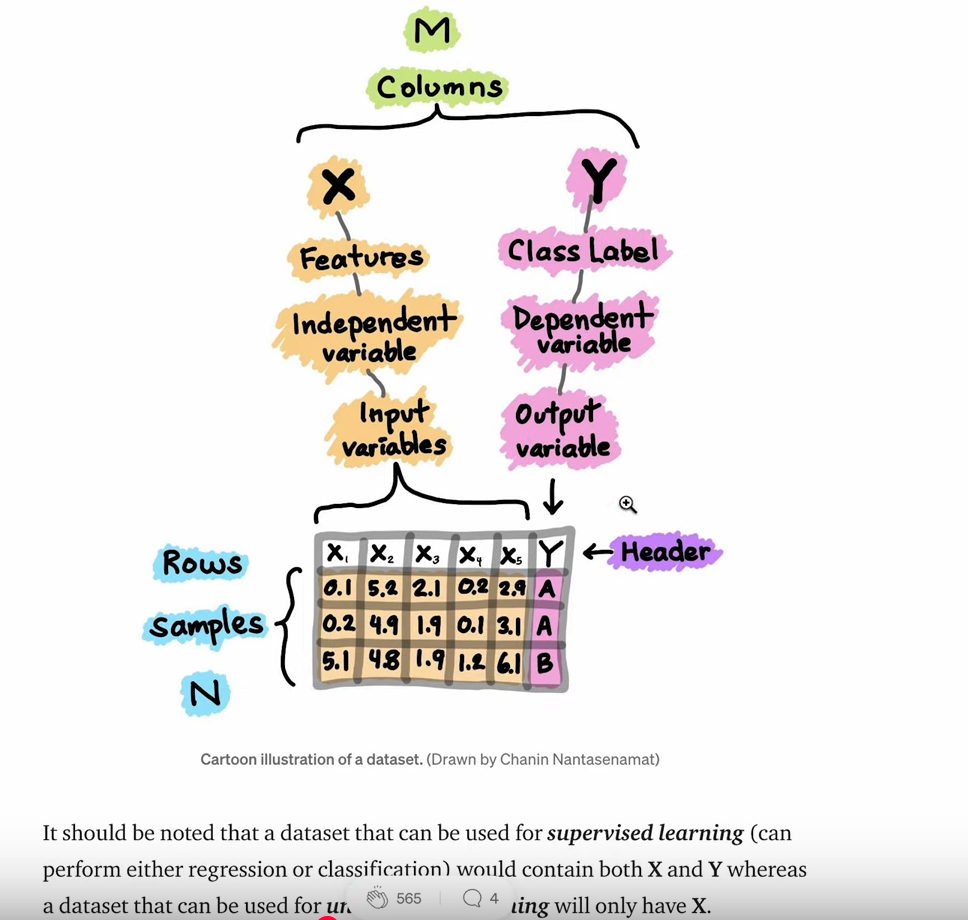 M
Columns
X
Y
Features
Class Label
Independent
variable
Dependent
variable
Input
variables
Output
variable
Rows
samples
N
X₁ X₂ X₃ X₄ X₅ Y
← Header
0.1 5.2 2.1 0.2 2.9 A
0.2 4.9 1.9 0.1 3.1 A
5.1 4.8 1.9 1.2 6.1 B
Cartoon illustration of a dataset. (Drawn by Chanin Nantasenamat)
It should be noted that a dataset that can be used for supervised learning (can
perform either regression or classification) would contain both X and Y whereas
a dataset that can be used for will only have X.
565
4